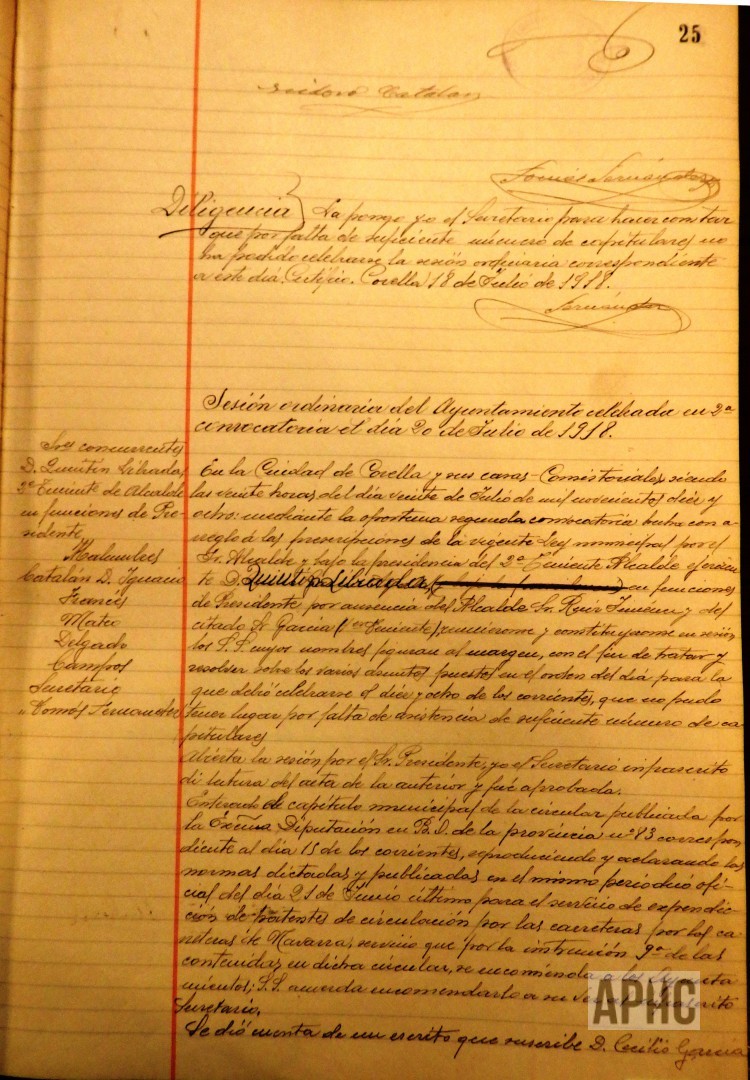 25
Isidoro Catalan
Tomás Fernández
Diligencia) La pongo yo el Secretario para hacer constar
que por falta de suficiente número de capitulares no
ha podido celebrarse la sesión ordinaria correspondiente
a este día. Certifico. Corella 18 de Julio de 1918.
Fernández
Sesión ordinaria del Ayuntamiento celebrada en 2ª
convocatoria el día 20 de Julio de 1918.
Sres concurrentes
D. Quintín Librada
2º Teniente de Alcalde
en funciones de Pre-
sidente
Catalán D. Ignacio
Francés
Mateo
Delgado
Campos
Secretario
" Tomás Fernández
En la Ciudad de Corella y sus casas-Consistoriales, siendo
las veinte horas del día veinte de Julio de mil novecientos diez y
ocho: mediante la oportuna segunda convocatoria hecha con a-
rreglo á las prescripciones de la vigente ley municipal por el
Sr. Alcalde y bajo la presidencia del 2º Teniente Alcalde
D. Quintín Librada, en funciones
de Presidente por ausencia del Alcalde Sr. Ruiz Jiménez y del
citado Sr. García (1er Teniente), reunieronse y constituyeronse en sesión
los S.S. cuyos nombres figuran al margen, con el fin de tratar y
resolver sobre los varios asuntos puestos en el orden del día para la
que debió celebrarse el diez y ocho de los corrientes, que no pudo
tener lugar por falta de asistencia de suficiente número de ca-
pitulares
Abierta la sesión por el Sr. Presidente, yo el Secretario infrascrito
di lectura del acta de la anterior y fué aprobada.
Enterado el capítulo municipal de la circular publicada por
la Excma. Diputación en B.O. de la provincia nº 83 correspon
diente al día 15 de los corrientes, reproduciendo y aclarando las
normas dictadas y publicadas en el mismo periodico ofi-
cial del día 21 de Junio último para el servicio de expendi-
ción de patentes de circulación por las carreteras por los ca-
mineros de Navarra, servicio que por la instrucción 9ª de las
contenidas en dicha circular, se encomienda a los Ayunta
mientos; S.S. acuerda encomendarlo a su infrascrito
Secretario.
Se dió cuenta de un escrito que suscribe D. Cecilio García
APHC